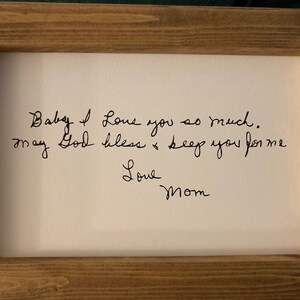 Baby I Love you so much.
may God bless & keep you for me
Love
Mom